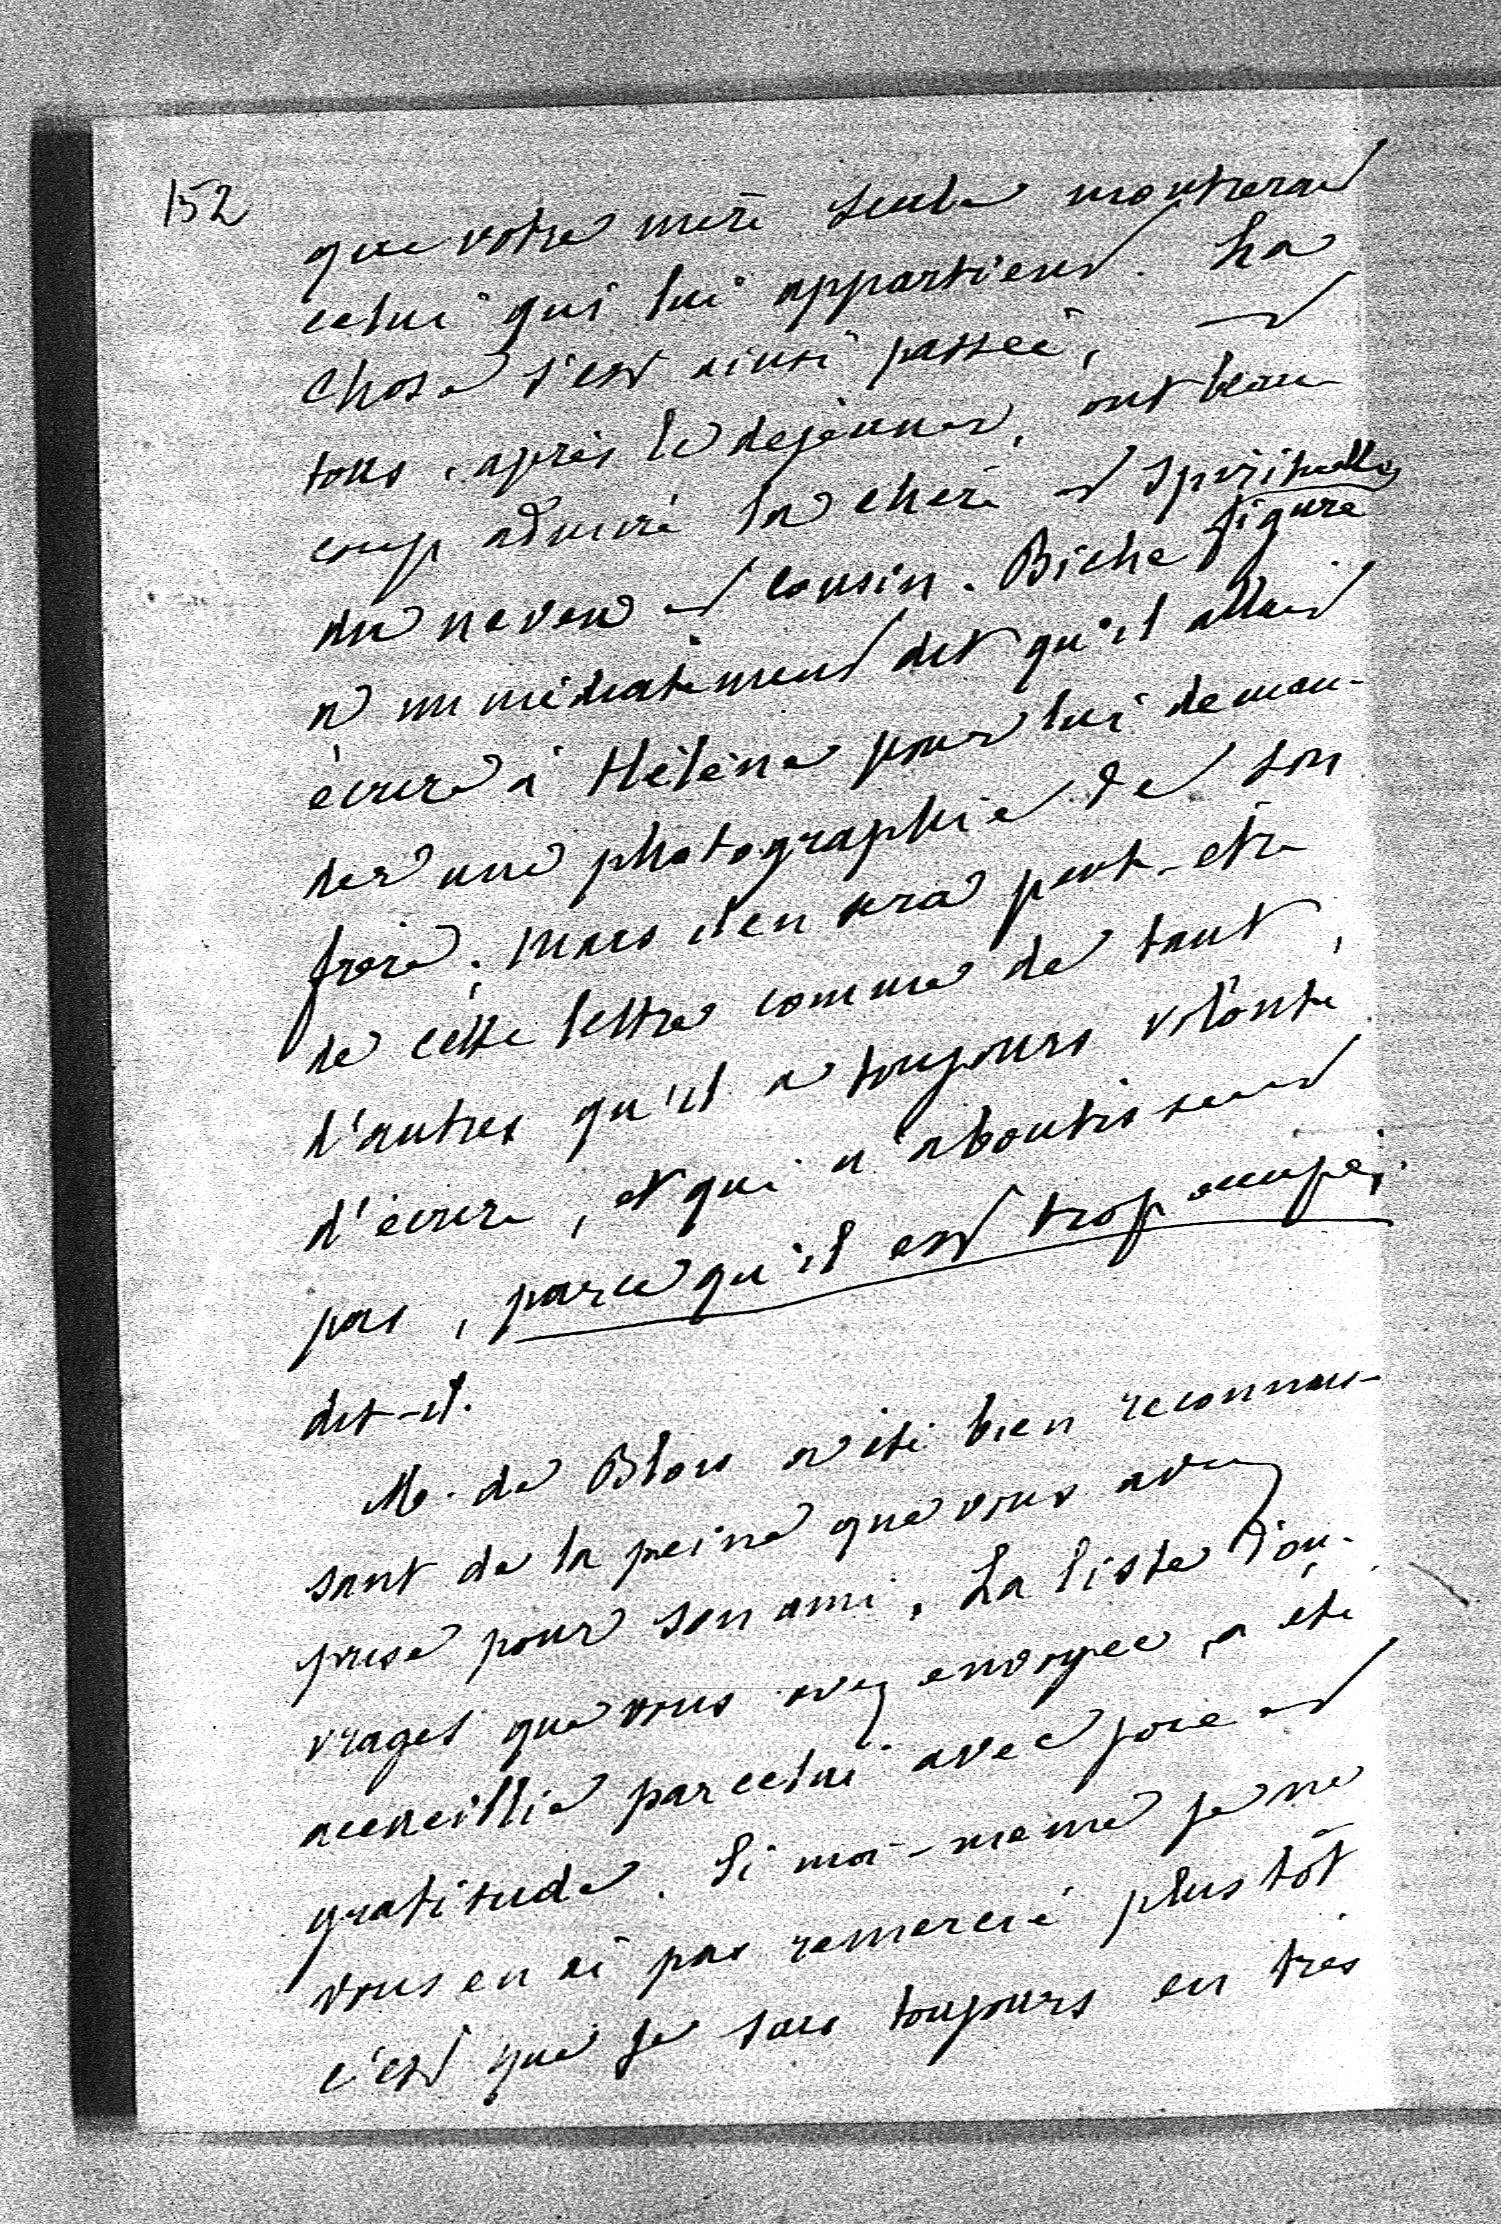 152
que votre mère seule montrerait
celui qui lui appartient. La
chose s'est ainsi passée, et
tous, après le déjeuner, ont beau-
coup admiré la chère et spirituelle
figure
du neveu et cousin. Biche
a immédiatement dit qu'il allait
écrire à Hélène pour lui deman-
der une photographie de son
frère; mais il en sera peut-être
de cette lettre comme de tant
d'autres qu'il a toujours volonté
d'écrire, et qui n'aboutissent
pas, parce qu'il est trop occupé,
dit-il.
M. de Blois a été bien reconnais-
sant de la peine que vous avez
prise pour son ami. La liste d'ou-
vrages que vous avez envoyée, a été
accueillie par celui avec joie et
gratitude. Si moi-même je ne
vous en ai pas remercié plus tôt
c'est que je suis toujours en très